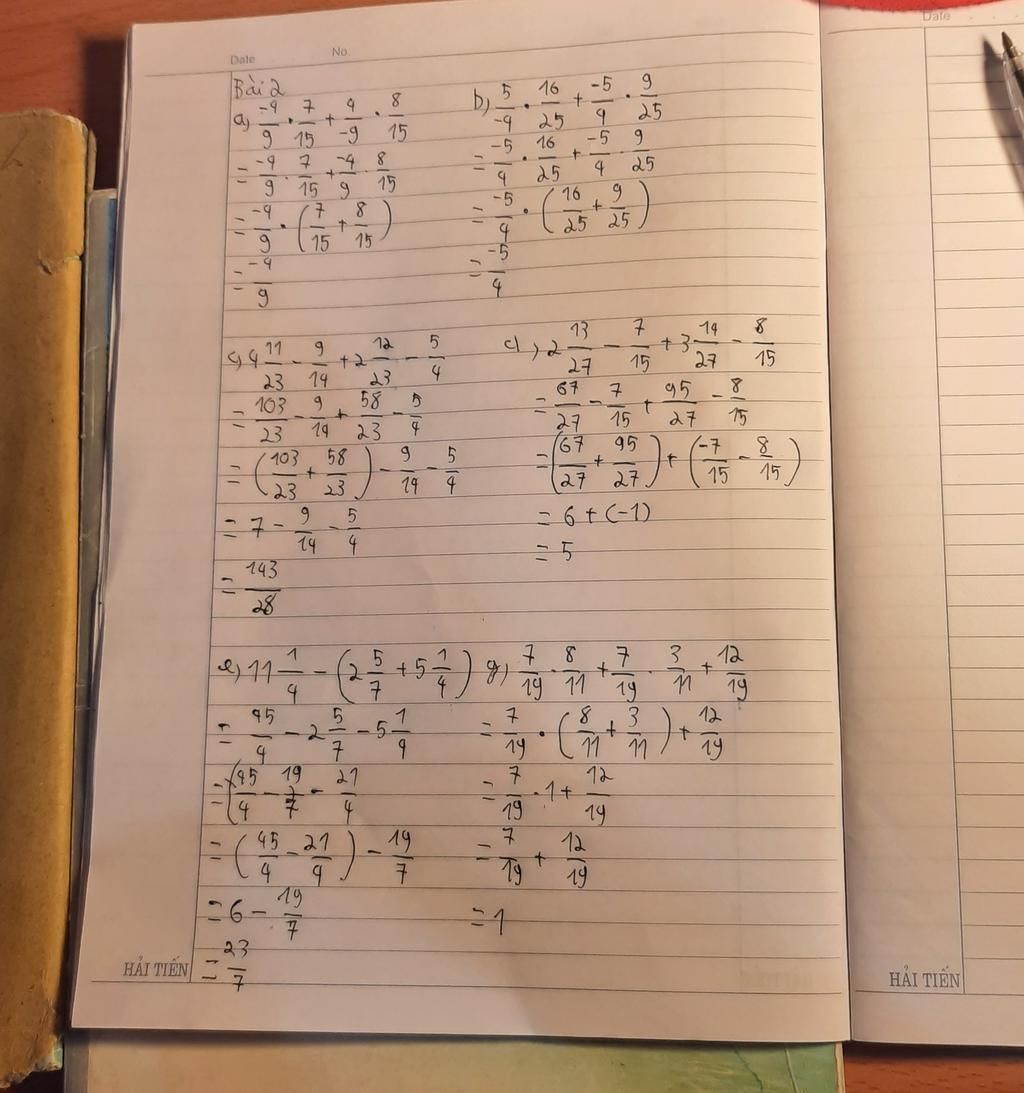 Date No.
Date
Bài 2
a, -4/9 . 7/15 + 4/-9 . 8/15
= -4/9 . 7/15 + -4/9 . 8/15
= -4/9 . (7/15 + 8/15)
= -4/9
b, 5/-4 . 16/25 + -5/4 . 9/25
= -5/4 . 16/25 + -5/4 . 9/25
= -5/4 . (16/25 + 9/25)
= -5/4
c, 4 11/23 - 9/14 + 2 12/23 - 5/4
= 103/23 - 9/14 + 58/23 - 5/4
= (103/23 + 58/23) - 9/14 - 5/4
= 7 - 9/14 - 5/4
= 143/28
d, 2 13/27 - 7/15 + 3 14/27 - 8/15
= 67/27 - 7/15 + 95/27 - 8/15
= (67/27 + 95/27) + (-7/15 - 8/15)
= 6 + (-1)
= 5
e, 11 1/4 - (2 5/7 + 5 1/4)
= 45/4 - 2 5/7 - 5 1/4
= (45/4 - 19/7 - 21/4
= (45/4 - 21/4) - 19/7
= 6 - 19/7
= 23/7
g, 7/19 . 8/11 + 7/19 . 3/11 + 12/19
= 7/19 . (8/11 + 3/11) + 12/19
= 7/19 . 1 + 12/19
= 7/19 + 12/19
= 1
HẢI TIẾN
HẢI TIẾN